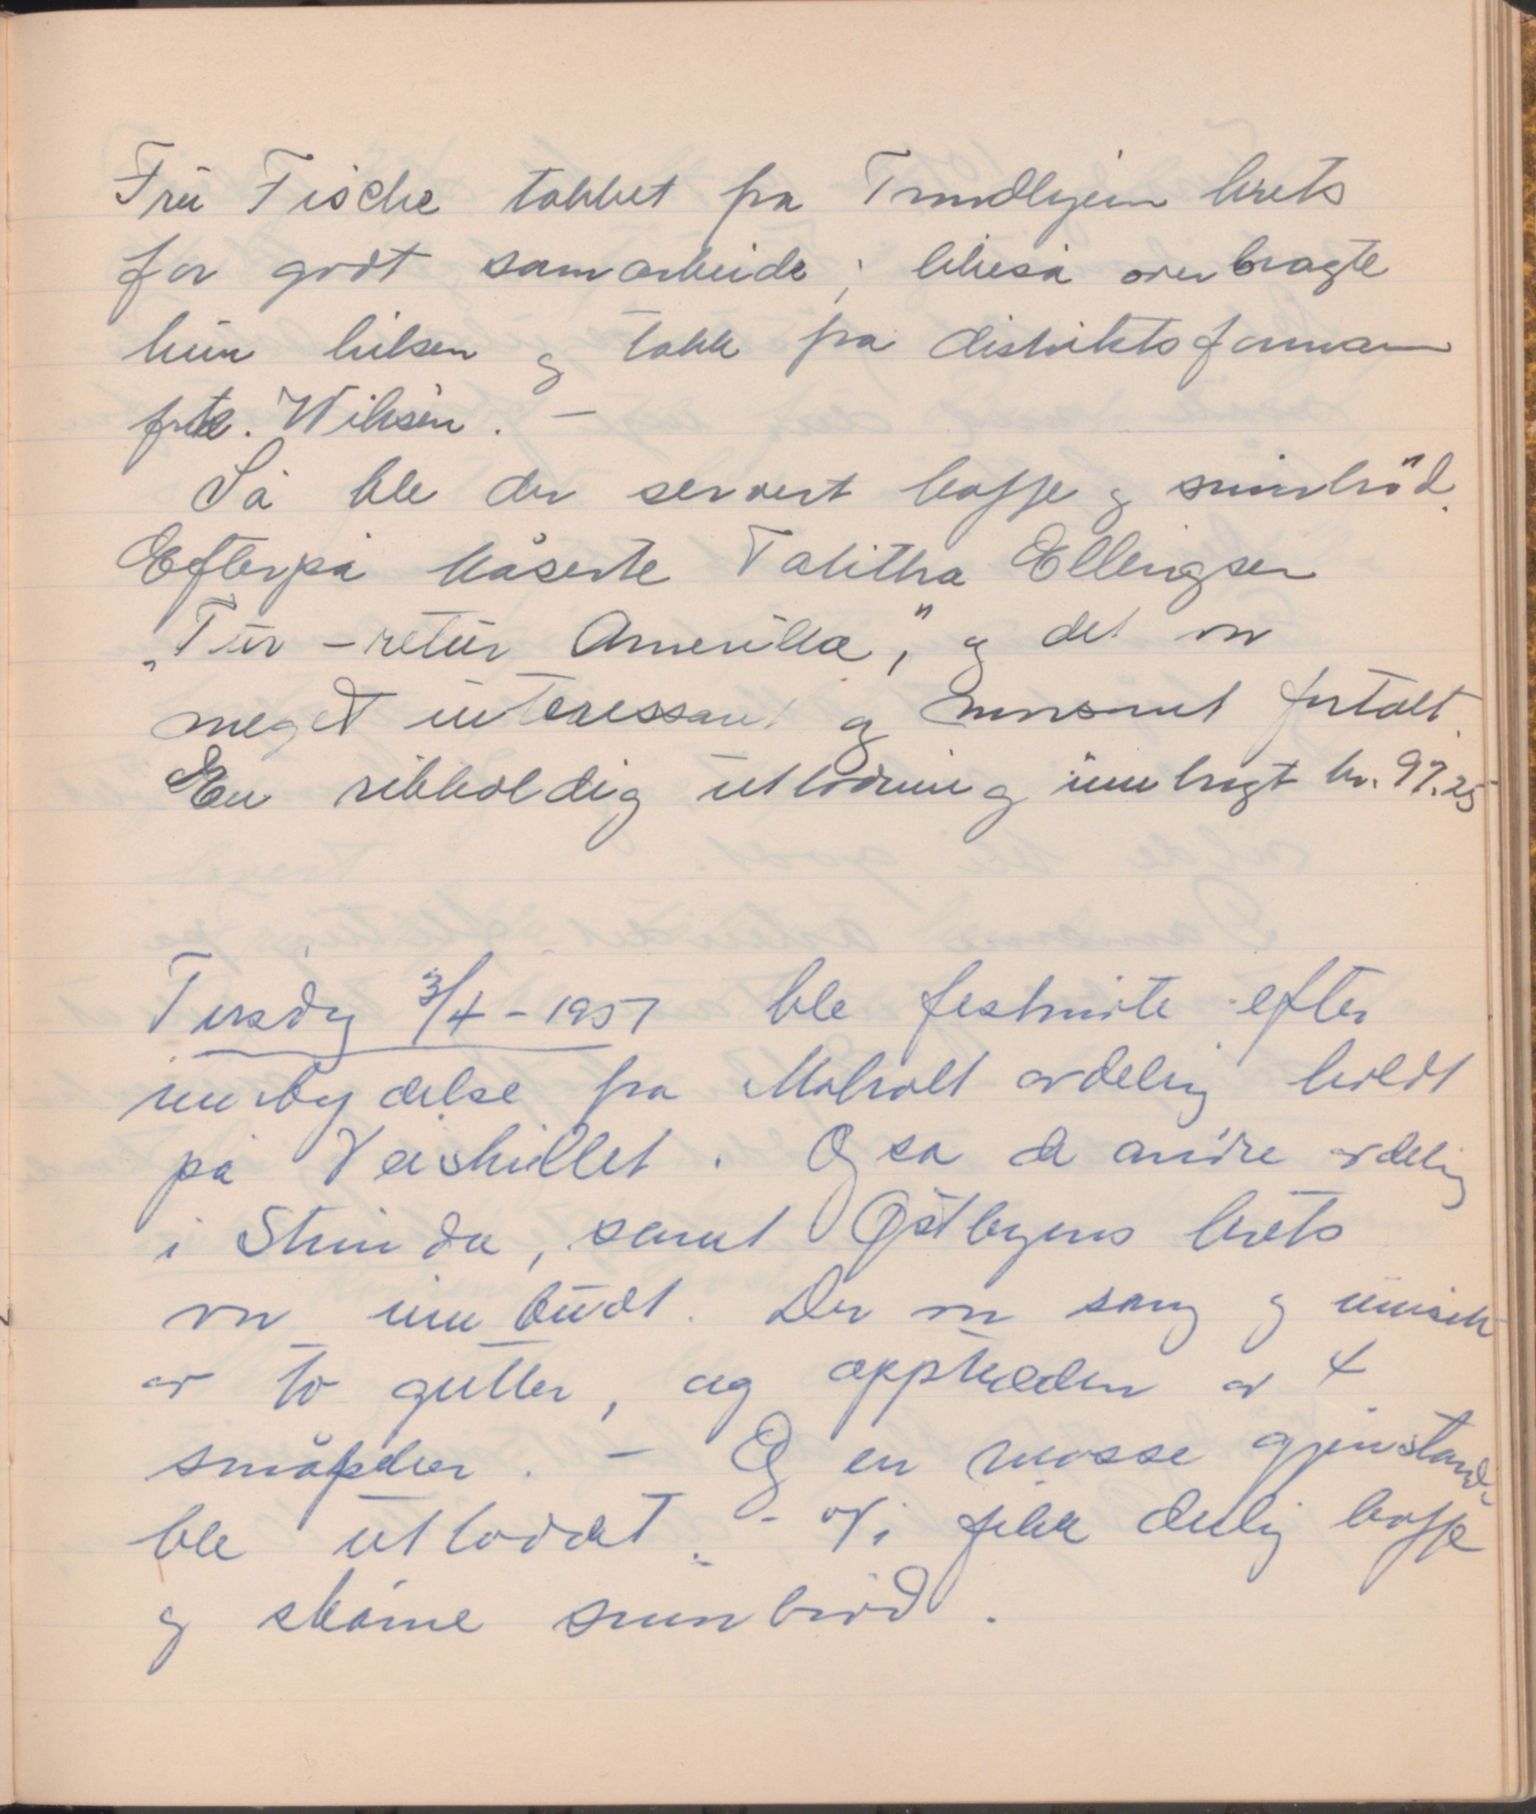 Fru Fische takket fra Trondhjem krets
for godt samarbeide; likeså overbragte
hun hilsen og takk fra distriktsformann
frk. Wiksén. –
Så ble der servert kaffe og smørbrød.
Efterpå kåserte Talitha Ellingsen
„Tur-retur Amerikka," og det var
meget interessant og morsomt fortalt.
En rikholdig utlodning innbragt kr. 97.25
Tirsdag 3/4-1957 ble festmøte efter
innbydelse fra Moholt avdeling holdt
på Veiskillet. Også de andre avdeling
i Strinda, samt Østbyens krets
var innbudt. Der var sang og musikk
av to gutter, og opptreden av 4
småpiker. – Og en masse gjenstand.
ble utloddet. – Vi fikk deilig kaffe
og skårne smørbrød.